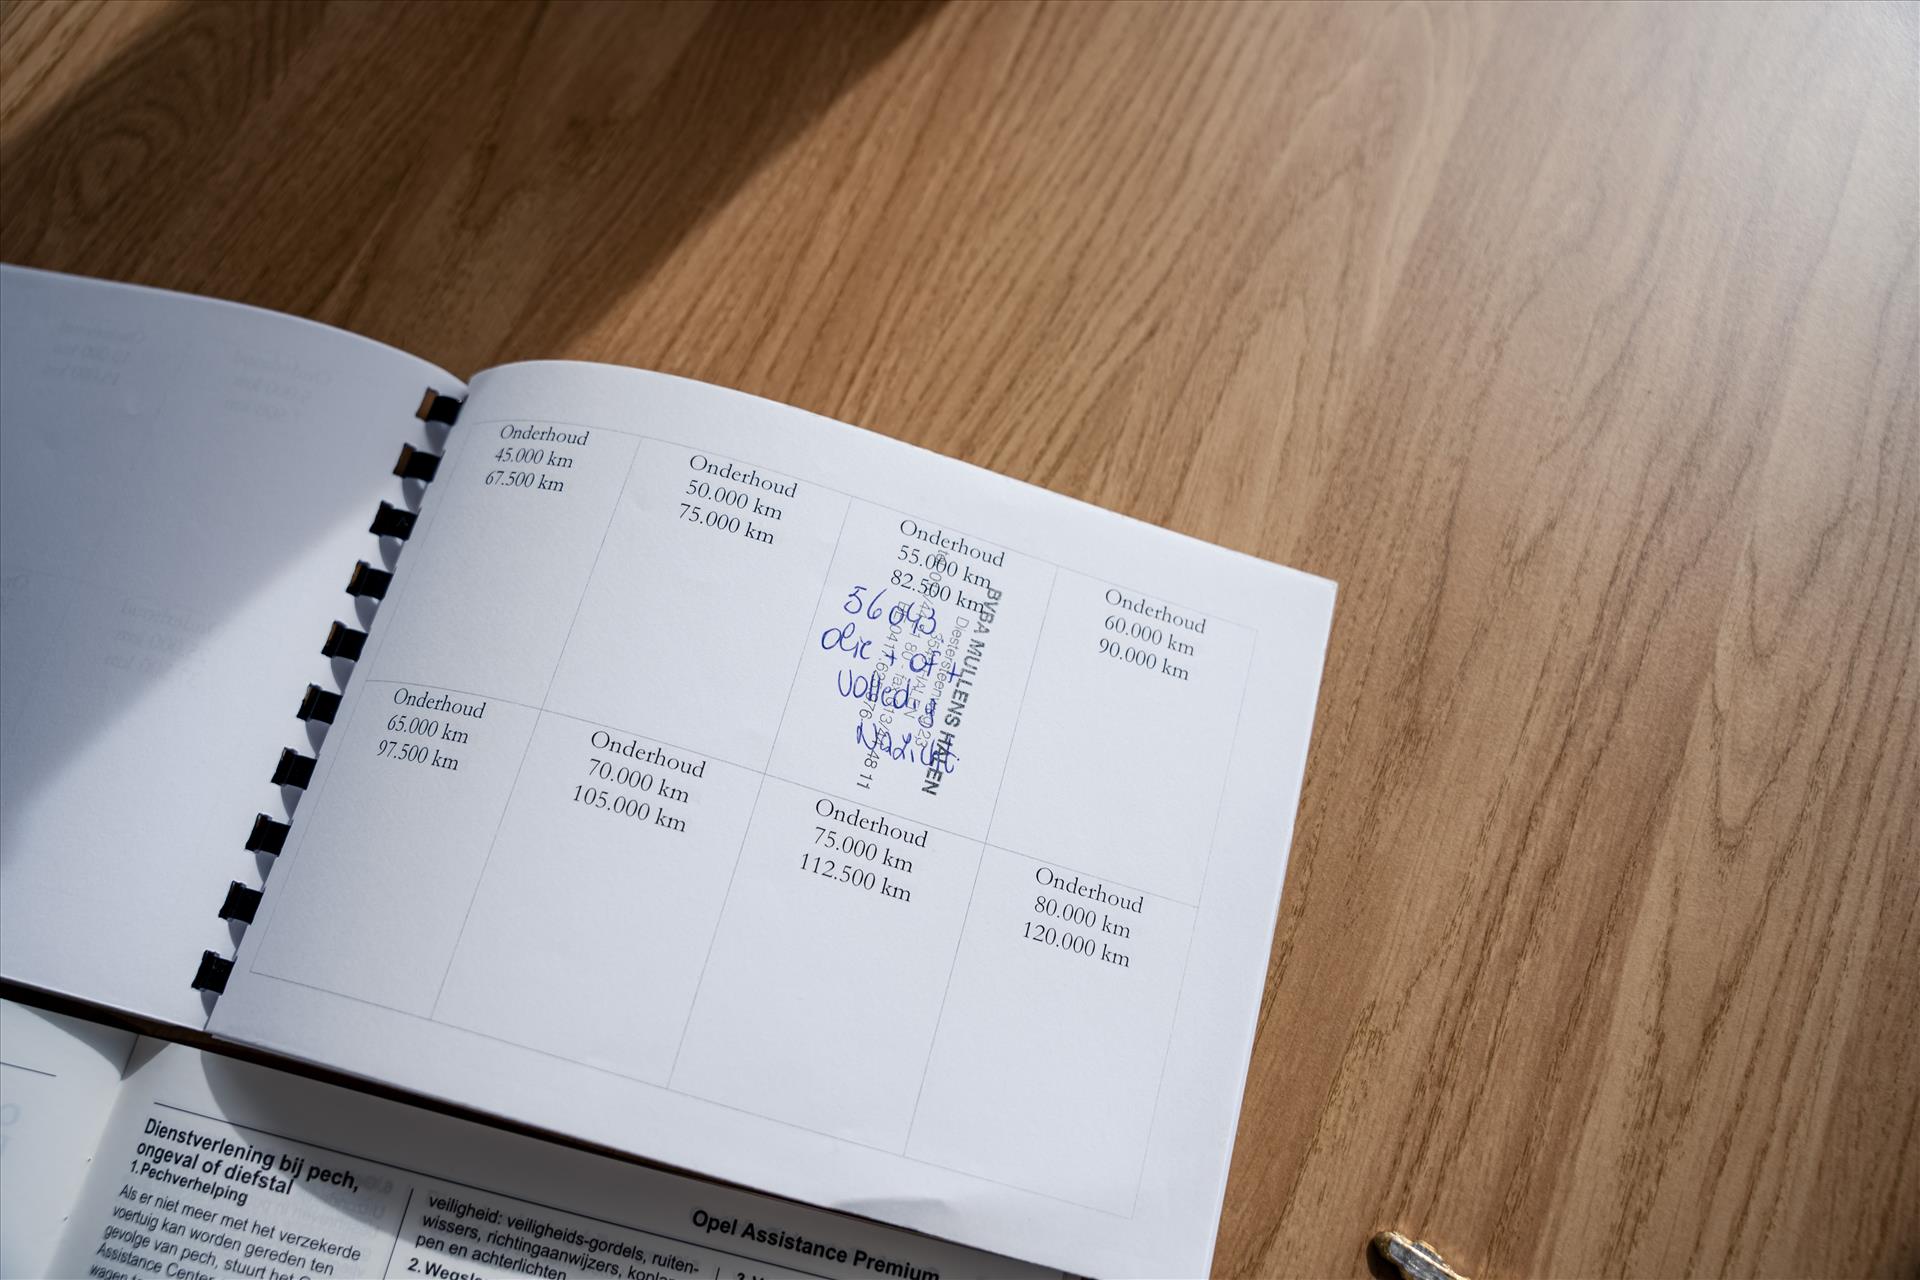 Onderhoud
45.000 km
67.500 km
Onderhoud
50.000 km
75.000 km
Onderhoud
55.000 km
82.500 km
56043
Olie + of +
Volled.
Nazicht
BVBA MULLENS HALEN
Diestersteenweg
HALEN
Onderhoud
60.000 km
90.000 km
Onderhoud
65.000 km
97.500 km
Onderhoud
70.000 km
105.000 km
Onderhoud
75.000 km
112.500 km
Onderhoud
80.000 km
120.000 km
Dienstverlening bij pech,
ongeval of diefstal
1.Pechverhelping
Als er niet meer met het verzekerde
voertuig kan worden gereden ten
gevolge van pech, stuurt het
Assistance Center
wagen
veiligheid: veiligheids-gordels, ruiten-
wissers, richtingaanwijzers,
pen en achterlichten
2.
Opel Assistance Premium